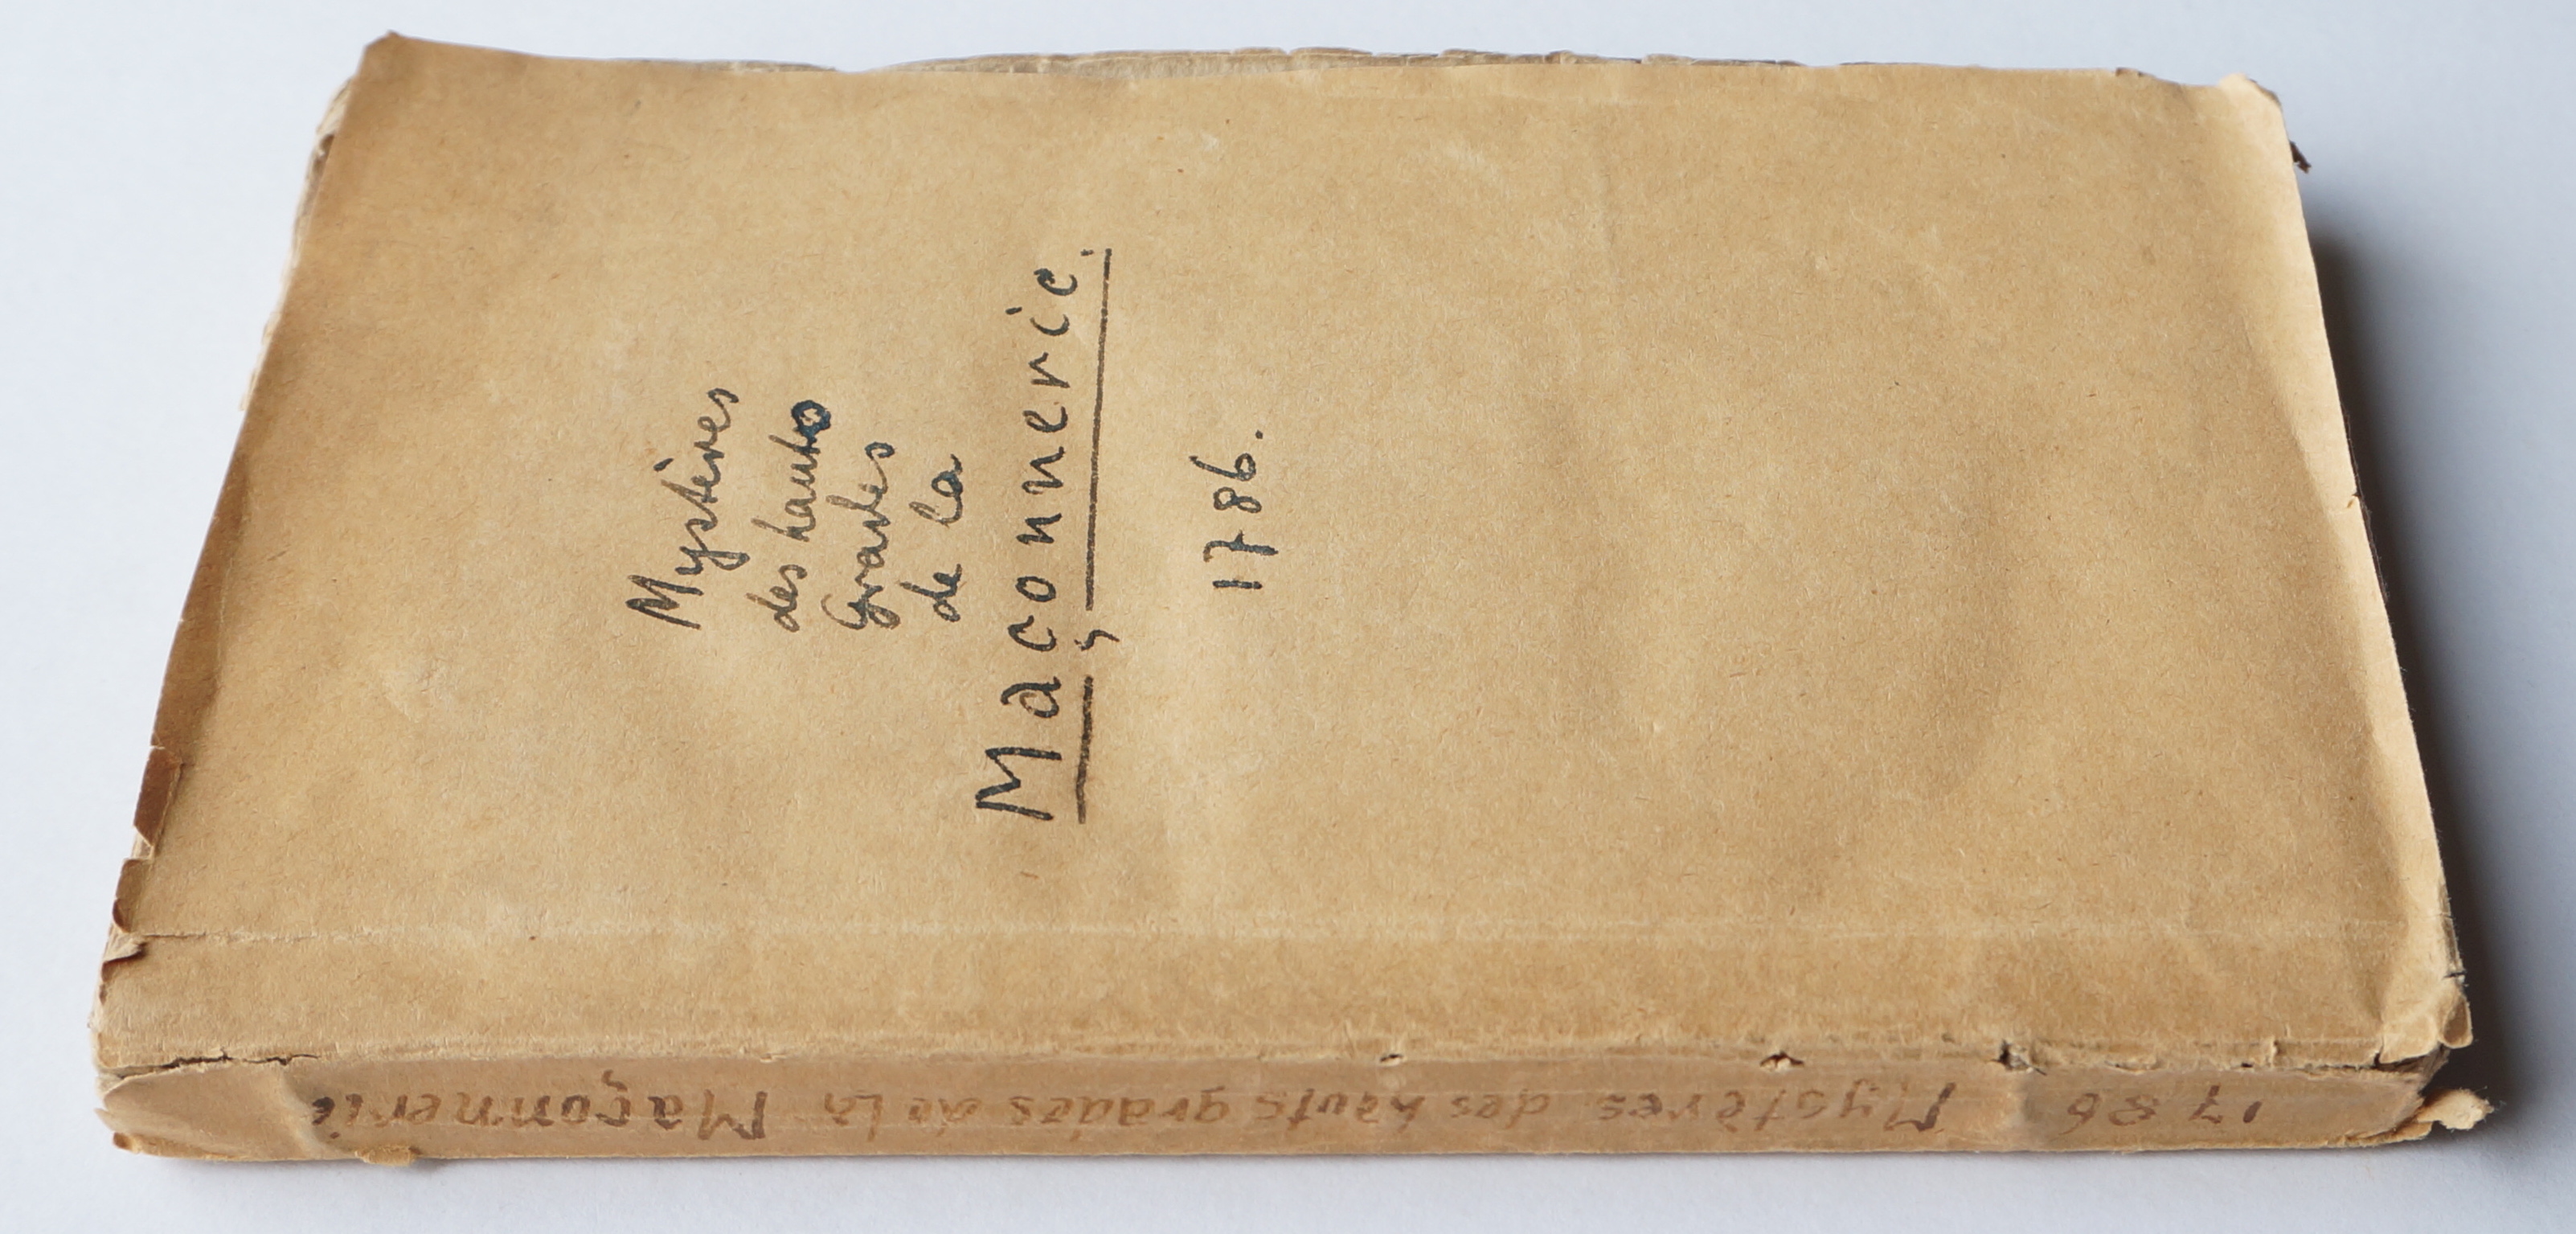 Mystères
des hauts
Grades
de la
Maçonnerie.
1786.
1786 Mystères des hauts grades de la Maçonnerie